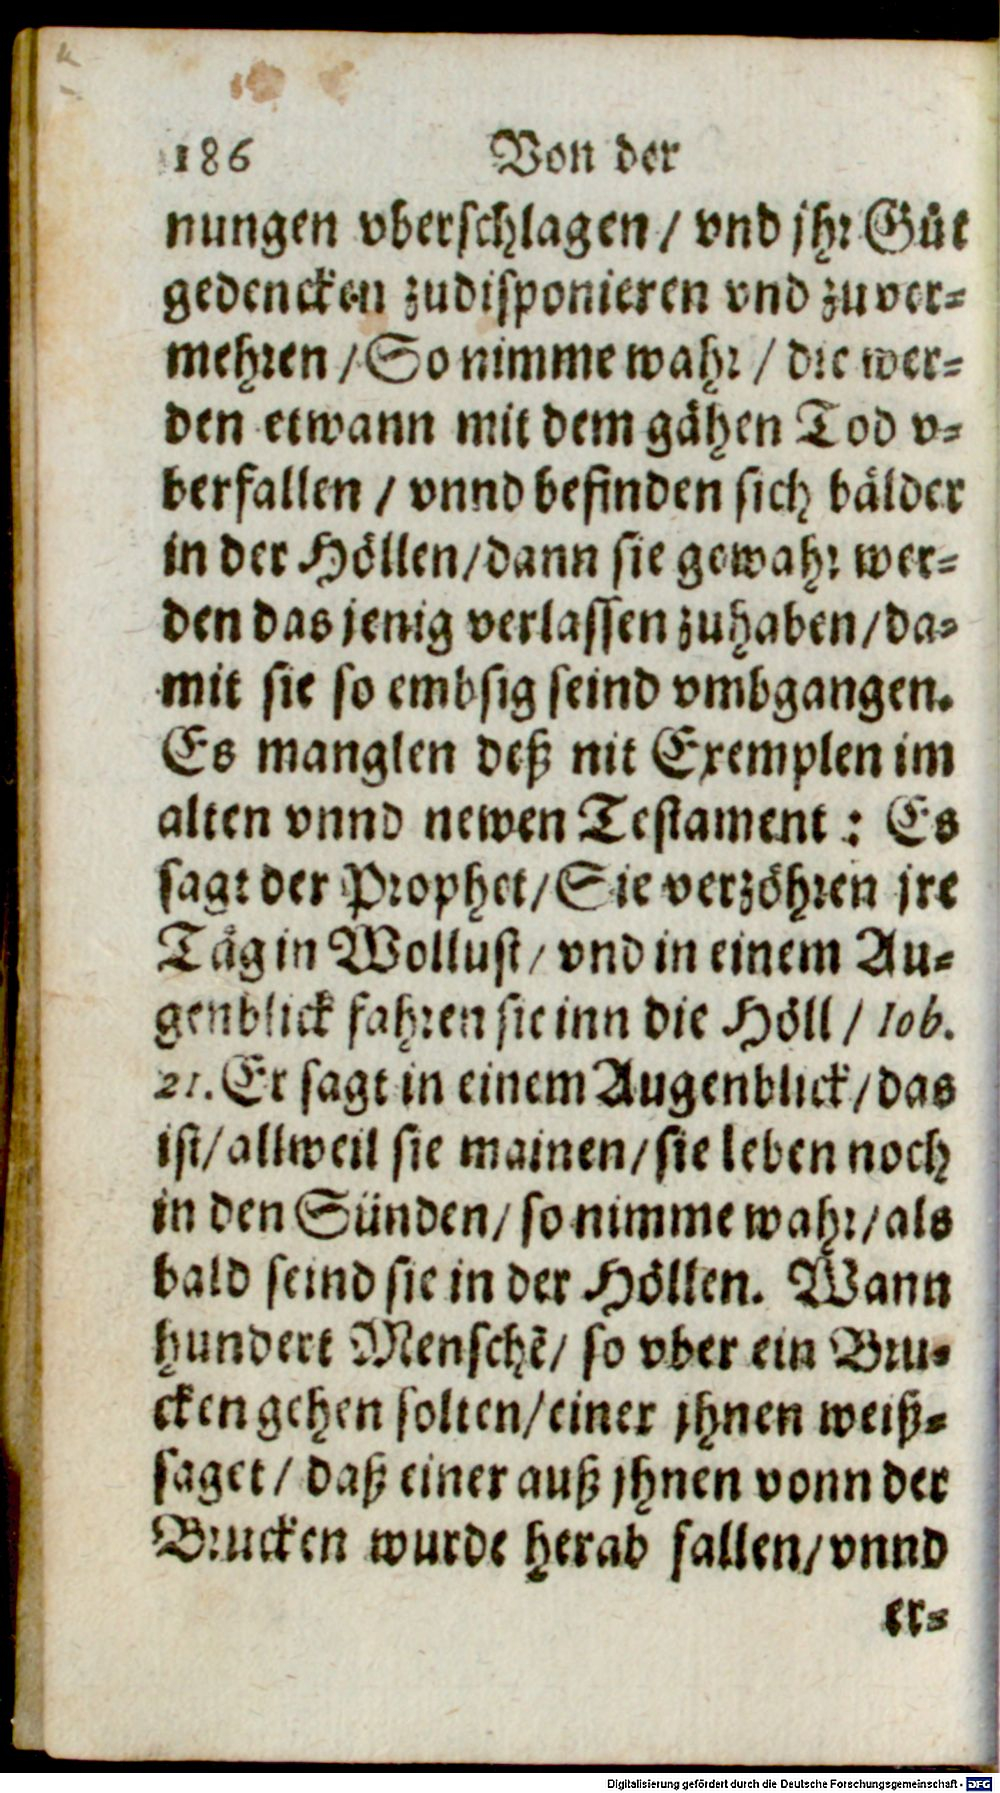 186 Von der
nungen vberschlagen / vnd jhr Güt
gedencken zudisponieren vnd zuver-
mehren / So nimme wahr / die wer-
den etwann mit dem gähen Tod v-
berfallen / vnnd befinden sich bälder
in der Höllen / dann sie gewahr wer-
den das jenig verlassen zuhaben / da-
mit sie so embsig seind vmbgangen.
Es manglen deß nit Exemplen im
alten vnnd newen Testament : Es
sagt der Prophet / Sie verzöhren jre
Täg in Wollust / vnd in einem Au-
genblick fahren sie inn die Höll / Iob.
21. Er sagt in einem Augenblick / das
ist / allweil sie mainen / sie leben noch
in den Sünden / so nimme wahr / als
bald seind sie in der Höllen. Wann
hundert Menschē / so vber ein Bru-
cken gehen solten / einer jhnen weiß-
saget / daß einer auß jhnen vonn der
Brucken wurde herab fallen / vnnd
er-
Digitalisierung gefördert durch die Deutsche Forschungsgemeinschaft - DFG